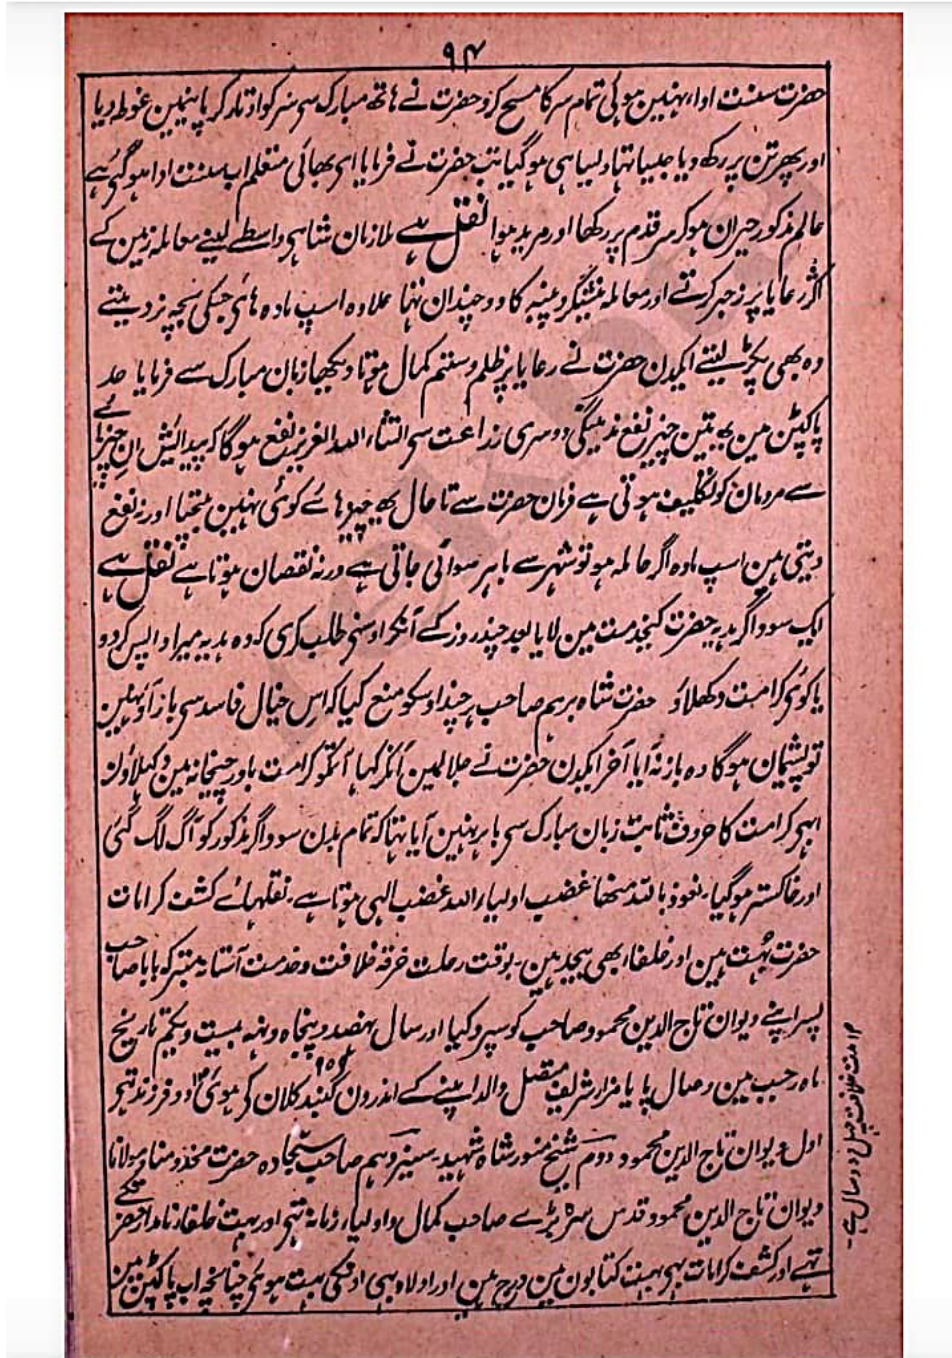 ۹۴
حضرت سنت ادا نہین ہوئی تمام سر کا مسح کرو حضرت نے ہاتھ مبارک سی سر کو اوتار کر پانیمین غوطہ دیا
اور پھر تن پر رکھ دیا جیسا تہا ویسا ہی ہو گیا تب حضرت نے فرمایا ای بھائی متعلم اب سنت ادا ہو گئی ہے
عالم مذکور حیران ہو کر سر قدم پر رکھا اور مرید ہوا نقل ہے ملازمان شاہی واسطے لینے معاملہ زمین کے
اکثر رعایا پر زجر کرتے اور معاملہ نیشکر و پنبہ کا دو چندان تہا علاوہ اسپ مادہ ہای جسکی بچہ نر دیتے
وہ بھی پکڑ لیتے ایکدن حضرت نے رعایا پر ظلم و ستم کمال ہوتا دیکھا زبان مبارک سے فرمایا حد
پاکپٹن مین یہ تین چیز نفع ندینگی دوسری زراعت سی انشاء اللہ العزیز نفع ہوگا کہ پیدایش ان چیزہائے
سے مردمان کو تکلیف ہوتی ہے فرمان حضرت سے تا حال یہ چیزہائے کوئی نہین بیجتا اور نہ نفع
دیتی ہین اسپ مادہ اگر حاملہ ہو تو شہر سے باہر سوائی جاتی ہے ورنہ نقصان ہوتا ہے نقل ہے
ایک سوداگر ہدیہ حضرت کیخدمت مین لایا بعد چند روز کے آنکر اوسنی طلب کری کہ وہ ہدیہ میرا واپس کردو
یا کوئی کرامت دکھلاؤ حضرت شاہ برہم صاحب ہر چند اوسکو منع کیا کہ اس خیال فاسد سی باز آؤ نہین
تو پشیمان ہوگا وہ باز نہ آیا آخر ایکدن حضرت نے جلالمین آنکر کہا آؤ تمکو کرامت باورچیخانہ مین دکہلاؤن
ابہی کرامت کا حروف ثابت زبان مبارک سی باہر نہین آیا تہا کہ تمام بدن سوداگر مذکور کو آگ لگ گئی
اور خاکستر ہو گیا۔ نعوذ باللہ منھا غضب اولیاء اللہ غضب الہی ہوتا ہے۔ نقلہائے کشف کرامات
حضرت بہت ہین اور خلفاء بھی بیحد ہین۔ بوقت رحلت خرقہ خلافت و خدمت آستانہ متبرکہ بابا صاحب
پسر اپنے دیوان تاج الدین محمود صاحب کو سپرد کیا اور سال نہصد و پنجاہ و نہہ بیست و یکم تاریخ
ماہ رجب مین وصال پایا مزار شریف متصل والد اپنے کے اندرون گنبد کلان کی ہوئی دو فرزند تہے
اول دیوان تاج الدین محمود دوم شیخ منور شاہ شہید۔ سیزدہم صاحب سجادہ حضرت مخدومنا و مولانا
دیوان تاج الدین محمود قدس سرہ بڑے صاحب کمال و اولیاء زمانہ تہی اور بہت خلفاء نامدار حضرتکے
تہے اور کشف کرامات بہی بہت کتابون مین درج ہین اور اولاد بہی اونکی بہت ہوئی چنانچہ اب پاکپٹن مین
مدت خلافت چہل و دو سال ہے۔